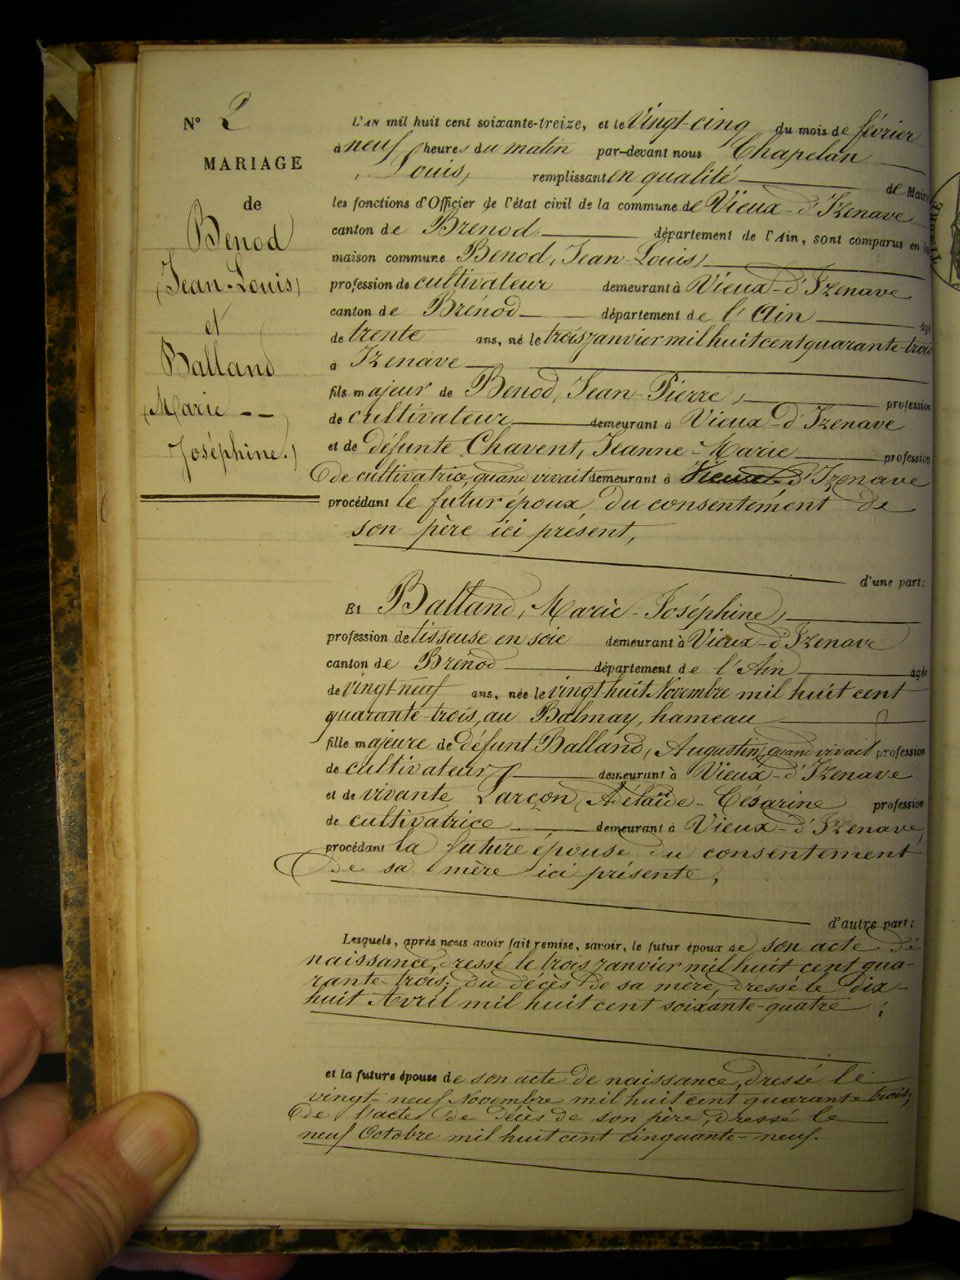 N° 2
MARIAGE
de
Benod
Jean-Louis
et
Balland
Marie --
Joséphine.
L'AN mil huit cent soixante-treize, et le vingt-cinq du mois de février
à neuf heures du matin par-devant nous Chapelan
Louis, remplissant en qualité de Maire
les fonctions d'Officier de l'état civil de la commune de Vieux-d'Izenave
canton de Brénod département de l'Ain, sont comparus en la
maison commune Benod, Jean-Louis,
profession de cultivateur demeurant à Vieux-d'Izenave
canton de Brénod département de l'Ain âgé
de trente ans, né le trois janvier mil huit cent quarante-trois
à Izenave
fils majeur de Benod, Jean-Pierre, profession
de cultivateur demeurant à Vieux-d'Izenave
et de défunte Chavent, Jeanne-Marie profession
de cultivatrice quand vivait demeurant à Vieux-d'Izenave
procédant le futur époux du consentement de
son père ici présent,
d'une part;
Et Balland, Marie-Joséphine,
profession de tisseuse en soie demeurant à Vieux-d'Izenave
canton de Brénod département de l'Ain âgée
de vingt-neuf ans, née le vingt huit Novembre mil huit cent
quarante-trois, au Balmay, hameau
fille majeure de défunt Balland, Augustin, quand vivait profession
de cultivateur demeurant à Vieux-d'Izenave
et de vivante Larçon, Adélaïde-Césarine profession
de cultivatrice demeurant à Vieux-d'Izenave,
procédant la future épouse du consentement
de sa mère ici présente,
d'autre part;
Lesquels, après nous avoir fait remise, savoir, le futur époux de son acte de
naissance, dressé le trois janvier mil huit cent qua-
rante-trois; du décès de sa mère, dressé le dix-
huit Avril mil huit cent soixante-quatre;
et la future épouse de son acte de naissance, dressé le
vingt-neuf Novembre mil huit cent quarante-trois;
de l'acte de décès de son père, dressé le
neuf Octobre mil huit cent cinquante-neuf.